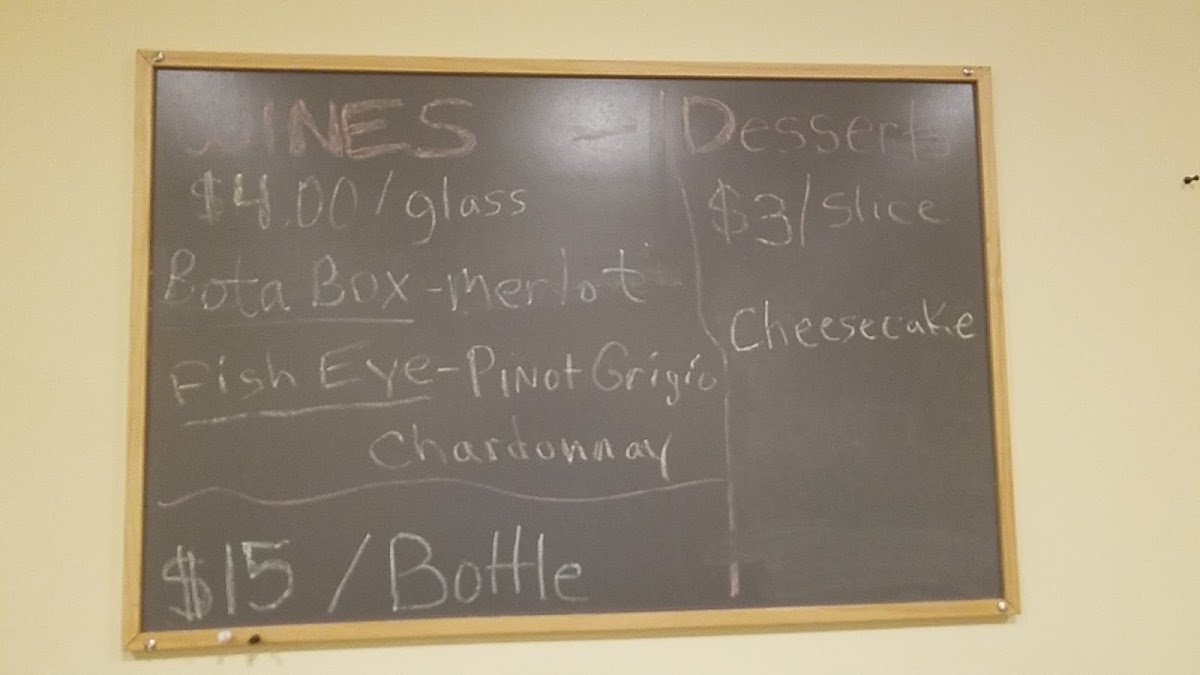 WINES -
$4.00/glass
Bota Box-merlot
Fish Eye-PiNot Grigio
Chardonnay
$15/Bottle
Desserts
$3/slice
Cheesecake